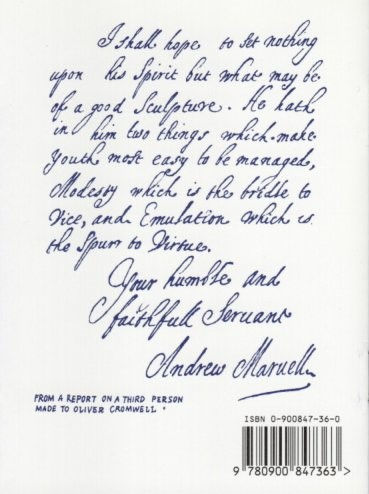 I shall hope to set nothing
upon his Spirit but what may be
of a good Sculpture. He hath
in him two things which make
youth most easy to be managed,
Modesty which is the bridle to
Vice, and Emulation which is
the Spurr to Virtue.
Your humble and
faithfull Servant
Andrew Marvell
FROM A REPORT ON A THIRD PERSON
MADE TO OLIVER CROMWELL.
ISBN 0-900847-36-0
9 780900 847363 >